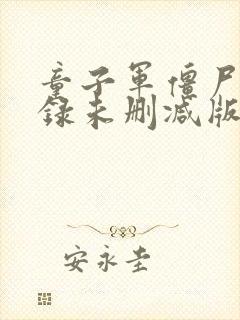 童子军僵尸
录未删减版
安永圭